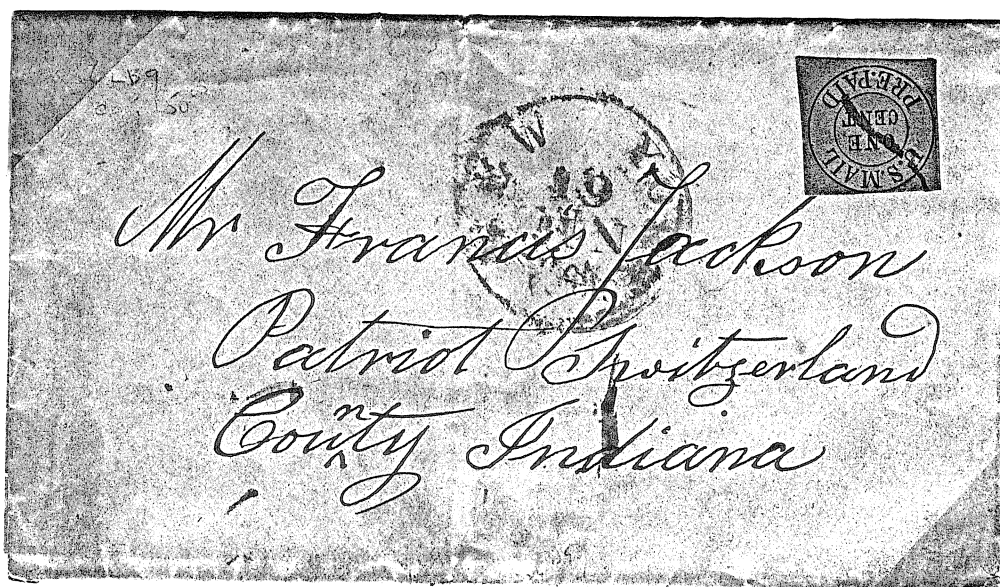 U.S. MAIL
ONE
CENT
PRE-PAID
NEW YORK
10
Mr Francis Jackson
Patriot Switzerland
County Indiana